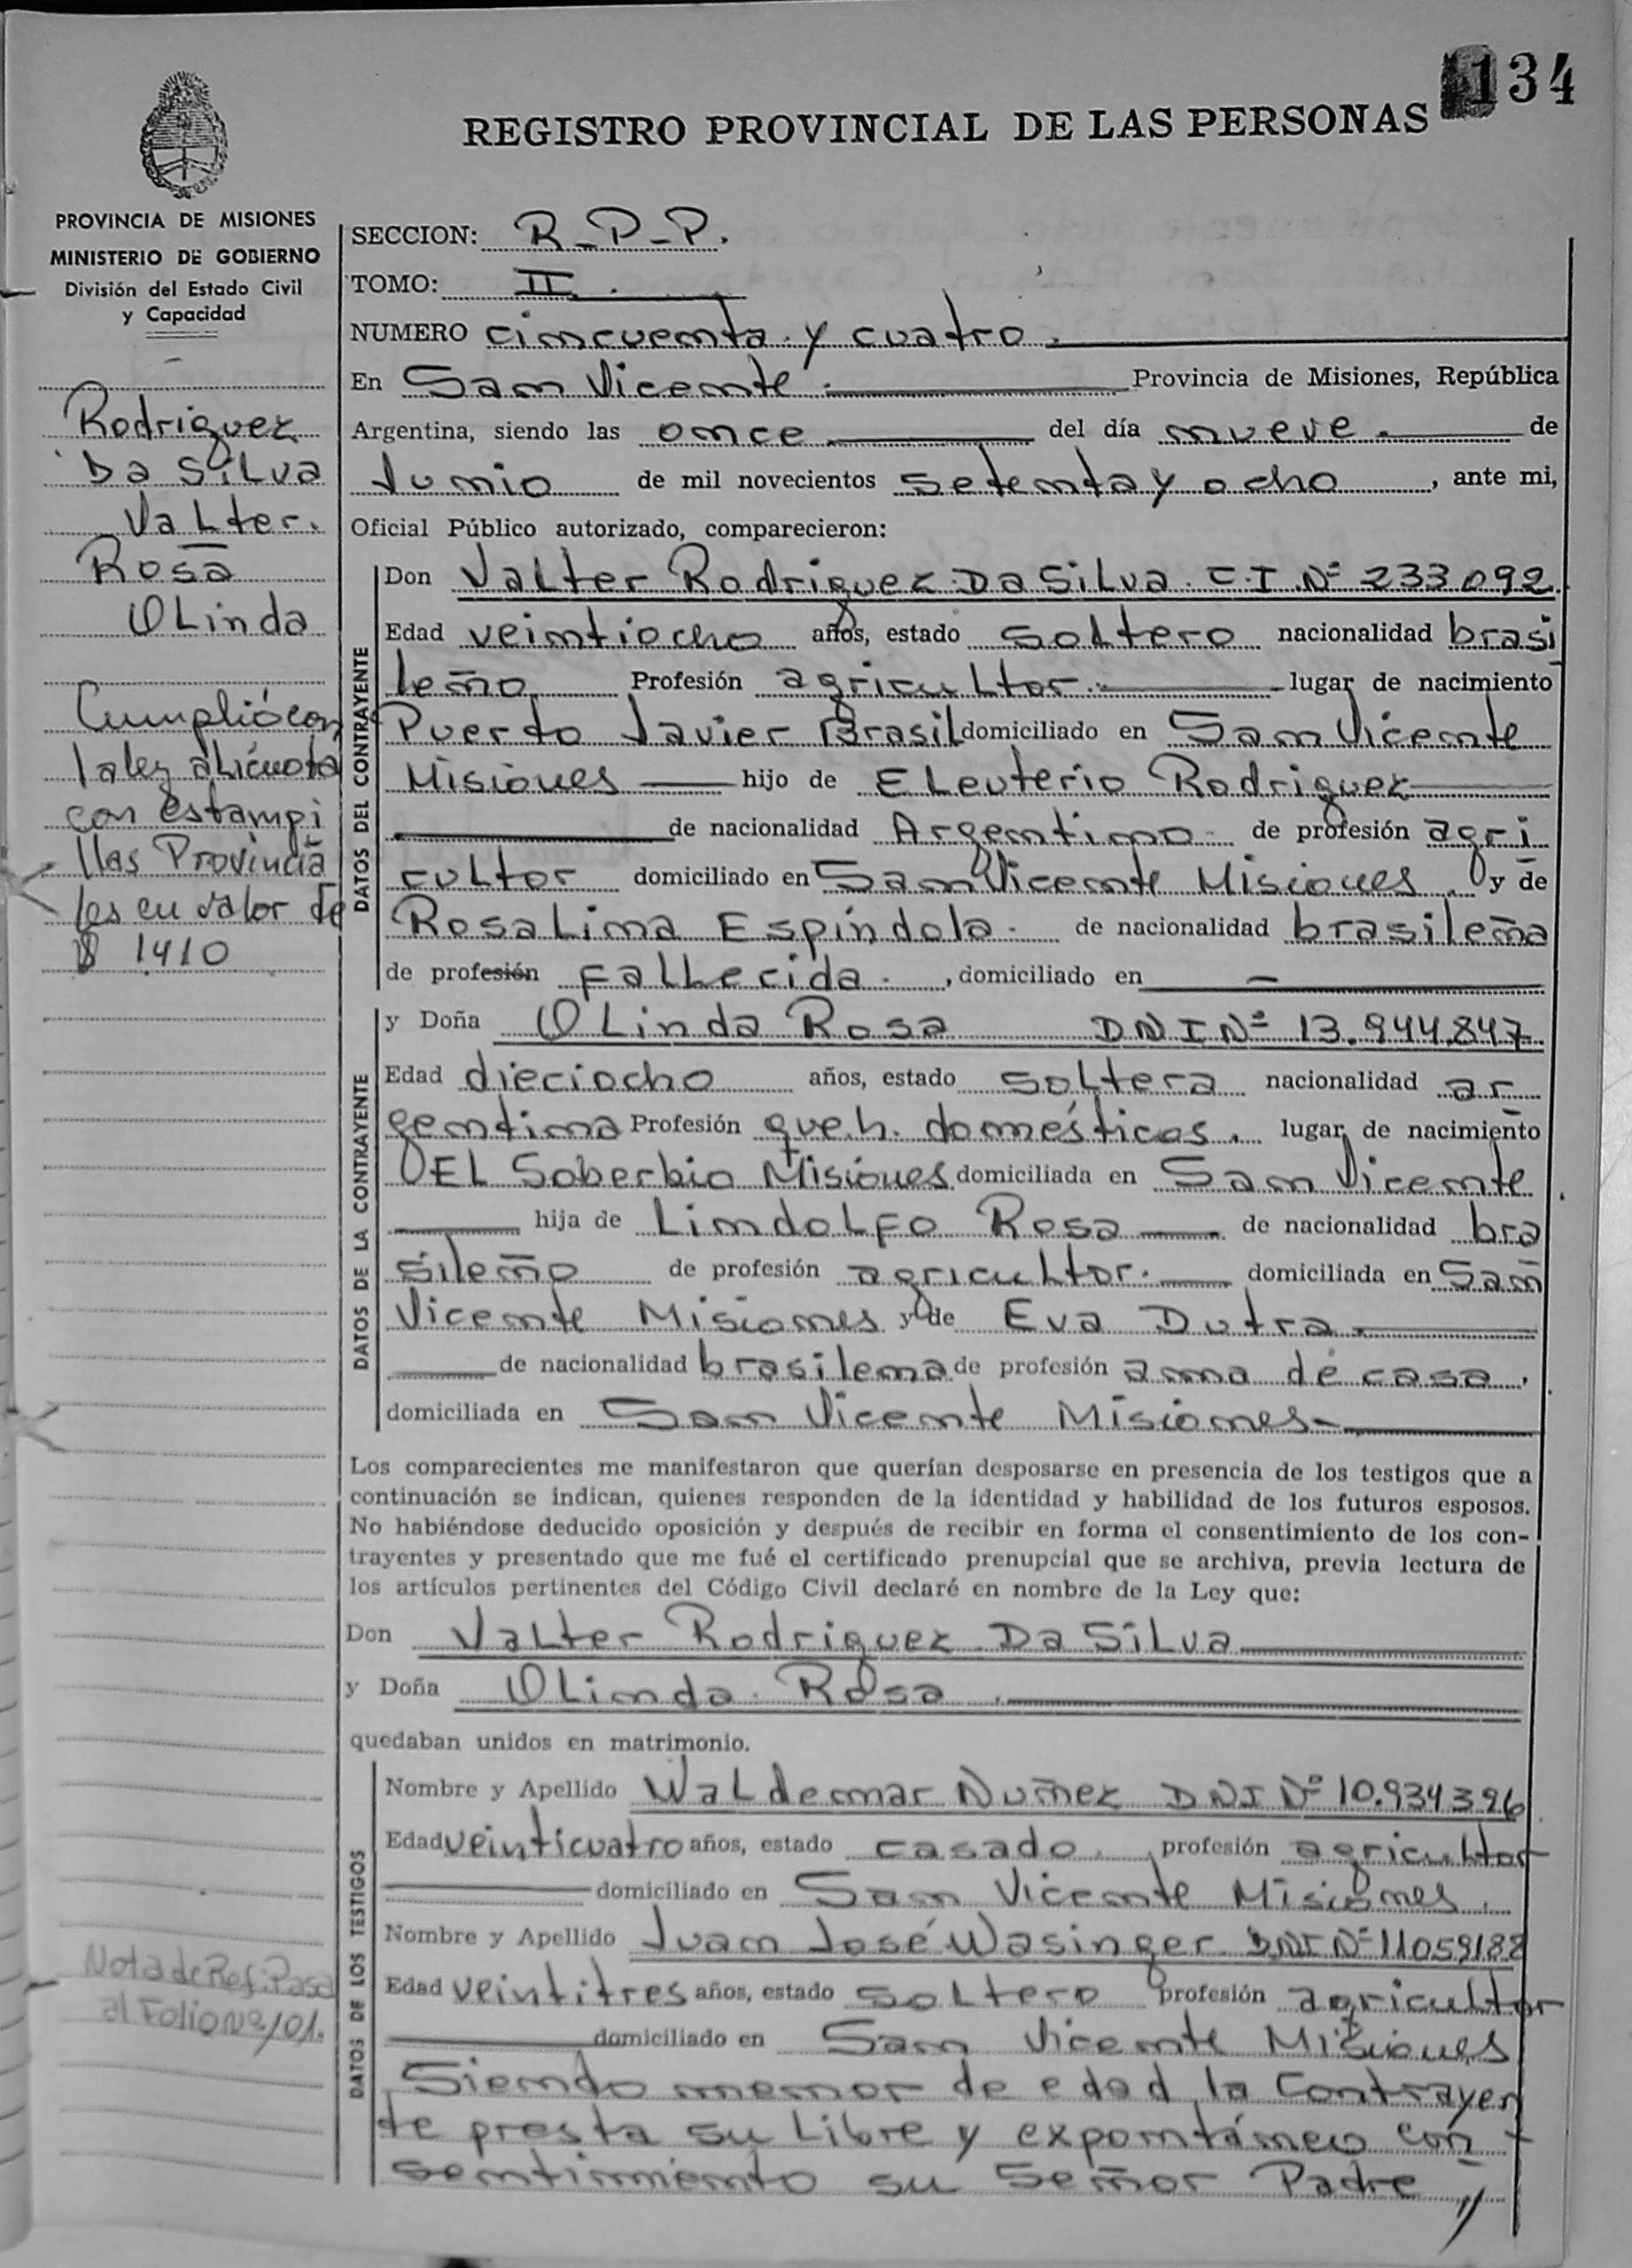 134
REGISTRO PROVINCIAL DE LAS PERSONAS
PROVINCIA DE MISIONES
MINISTERIO DE GOBIERNO
División del Estado Civil
y Capacidad
Rodriguez
Da Silva
Valter.
Rosa
Olinda
Cumplió con
la ley alicuota
con estampi
llas Provincia
les en valor de
$ 1410
Nota de Ref: Pasa
al Folio Nº 101.
SECCION: R-P-P.
TOMO: II.
NUMERO cincuenta y cuatro.
En San Vicente. Provincia de Misiones, República
Argentina, siendo las once del día nueve. de
Junio de mil novecientos setenta y ocho, ante mi,
Oficial Público autorizado, comparecieron:
DATOS DEL CONTRAYENTE
Don Valter Rodriguez Da Silva C.I.Nº 233.092
Edad veintiocho años, estado soltero nacionalidad brasi
leño Profesión agricultor. lugar de nacimiento
Puerto Javier Brasil domiciliado en San Vicente
Misiones hijo de Eleuterio Rodriguez
de nacionalidad Argentino de profesión agri
cultor domiciliado en San Vicente Misiones. y de
Rosalima Espíndola. de nacionalidad brasileña
de profesión fallecida., domiciliado en -
DATOS DE LA CONTRAYENTE
y Doña Olinda Rosa DNI Nº 13.944.847
Edad dieciocho años, estado soltera nacionalidad ar
gentina Profesión queh. domésticos. lugar de nacimiento
El Soberbio Misiones domiciliada en San Vicente.
hija de Lindolfo Rosa de nacionalidad bra
sileño de profesión agricultor. domiciliada en San
Vicente Misiones y de Eva Dutra.
de nacionalidad brasilena de profesión ama de casa.
domiciliada en San Vicente Misiones-
Los comparecientes me manifestaron que querían desposarse en presencia de los testigos que a
continuación se indican, quienes responden de la identidad y habilidad de los futuros esposos.
No habiéndose deducido oposición y después de recibir en forma el consentimiento de los con-
trayentes y presentado que me fué el certificado prenupcial que se archiva, previa lectura de
los artículos pertinentes del Código Civil declaré en nombre de la Ley que:
Don Valter Rodriguez Da Silva
y Doña Olinda Rosa.
quedaban unidos en matrimonio.
DATOS DE LOS TESTIGOS
Nombre y Apellido Waldemar Nuñez DNI Nº 10.934326
Edad veinticuatro años, estado casado., profesión agricultor
domiciliado en San Vicente Misiones.
Nombre y Apellido Juan José Wasinger DNI Nº 11059188
Edad veintitres años, estado soltero profesión agricultor
domiciliado en San Vicente Misiones
Siendo menor de edad la contrayen
te presta su libre y expontáneo con
sentimiento su Señor Padre //